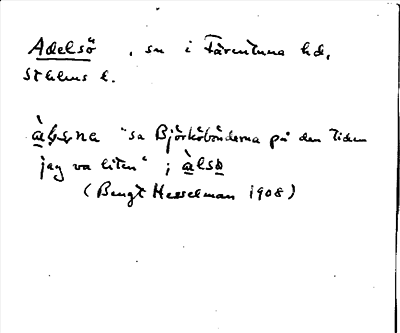 Adelsö, sn i Färentuna hd,
Sthlms l.
"sa Björköbönderna på den tiden
jag va liten"; àlsø
(Bengt Hesselman 1908)